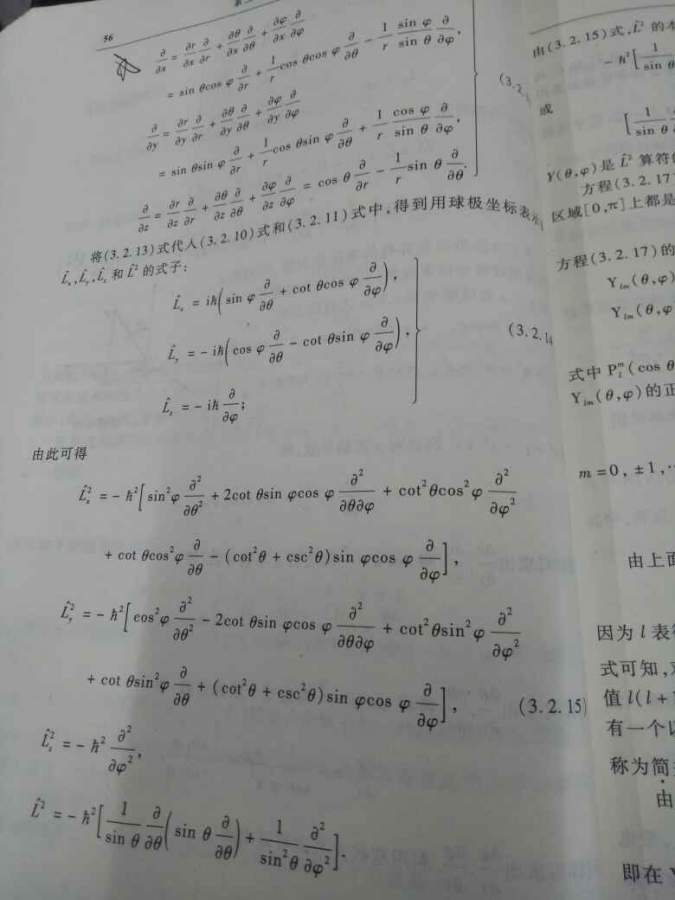 56
∂/∂x = ∂r/∂x ∂/∂r + ∂θ/∂x ∂/∂θ + ∂φ/∂x ∂/∂φ
= sin θcos φ ∂/∂r + 1/r cos θcos φ ∂/∂θ − 1/r sin φ/sin θ ∂/∂φ,
∂/∂y = ∂r/∂y ∂/∂r + ∂θ/∂y ∂/∂θ + ∂φ/∂y ∂/∂φ
= sin θsin φ ∂/∂r + 1/r cos θsin φ ∂/∂θ + 1/r cos φ/sin θ ∂/∂φ,
∂/∂z = ∂r/∂z ∂/∂r + ∂θ/∂z ∂/∂θ + ∂φ/∂z ∂/∂φ = cos θ ∂/∂r − 1/r sin θ ∂/∂θ.
(3.2.
将(3.2.13)式代入(3.2.10)式和(3.2.11)式中,得到用球极坐标表
L̂ₓ,L̂ᵧ,L̂_z 和 L̂² 的式子:
L̂ₓ = iħ(sin φ ∂/∂θ + cot θcos φ ∂/∂φ),
L̂ᵧ = − iħ(cos φ ∂/∂θ − cot θsin φ ∂/∂φ),
(3.2.14
L̂_z = − iħ ∂/∂φ;
由此可得
L̂ₓ² = − ħ²[sin²φ ∂²/∂θ² + 2cot θsin φcos φ ∂²/∂θ∂φ + cot²θcos²φ ∂²/∂φ²
+ cot θcos²φ ∂/∂θ − (cot²θ + csc²θ)sin φcos φ ∂/∂φ],
L̂ᵧ² = − ħ²[cos²φ ∂²/∂θ² − 2cot θsin φcos φ ∂²/∂θ∂φ + cot²θsin²φ ∂²/∂φ²
+ cot θsin²φ ∂/∂θ + (cot²θ + csc²θ)sin φcos φ ∂/∂φ],
(3.2.15)
L̂_z² = − ħ² ∂²/∂φ²,
L̂² = − ħ²[1/sin θ ∂/∂θ(sin θ ∂/∂θ) + 1/sin²θ ∂²/∂φ²].
由(3.2.15)式,L̂² 的本
− ħ²[1/sin θ
或
[1/sin θ
Y(θ,φ)是 L̂² 算符
方程(3.2.17
区域[0,π]上都是
方程(3.2.17)的
Yₗₘ(θ,φ)
Yₗₘ(θ,φ
式中 Pₗᵐ(cos θ
Yₗₘ(θ,φ)的正
m = 0, ±1,
由上面
因为 l 表
式可知,
值 l(l +
有一个以
称为简
由
即在 Y